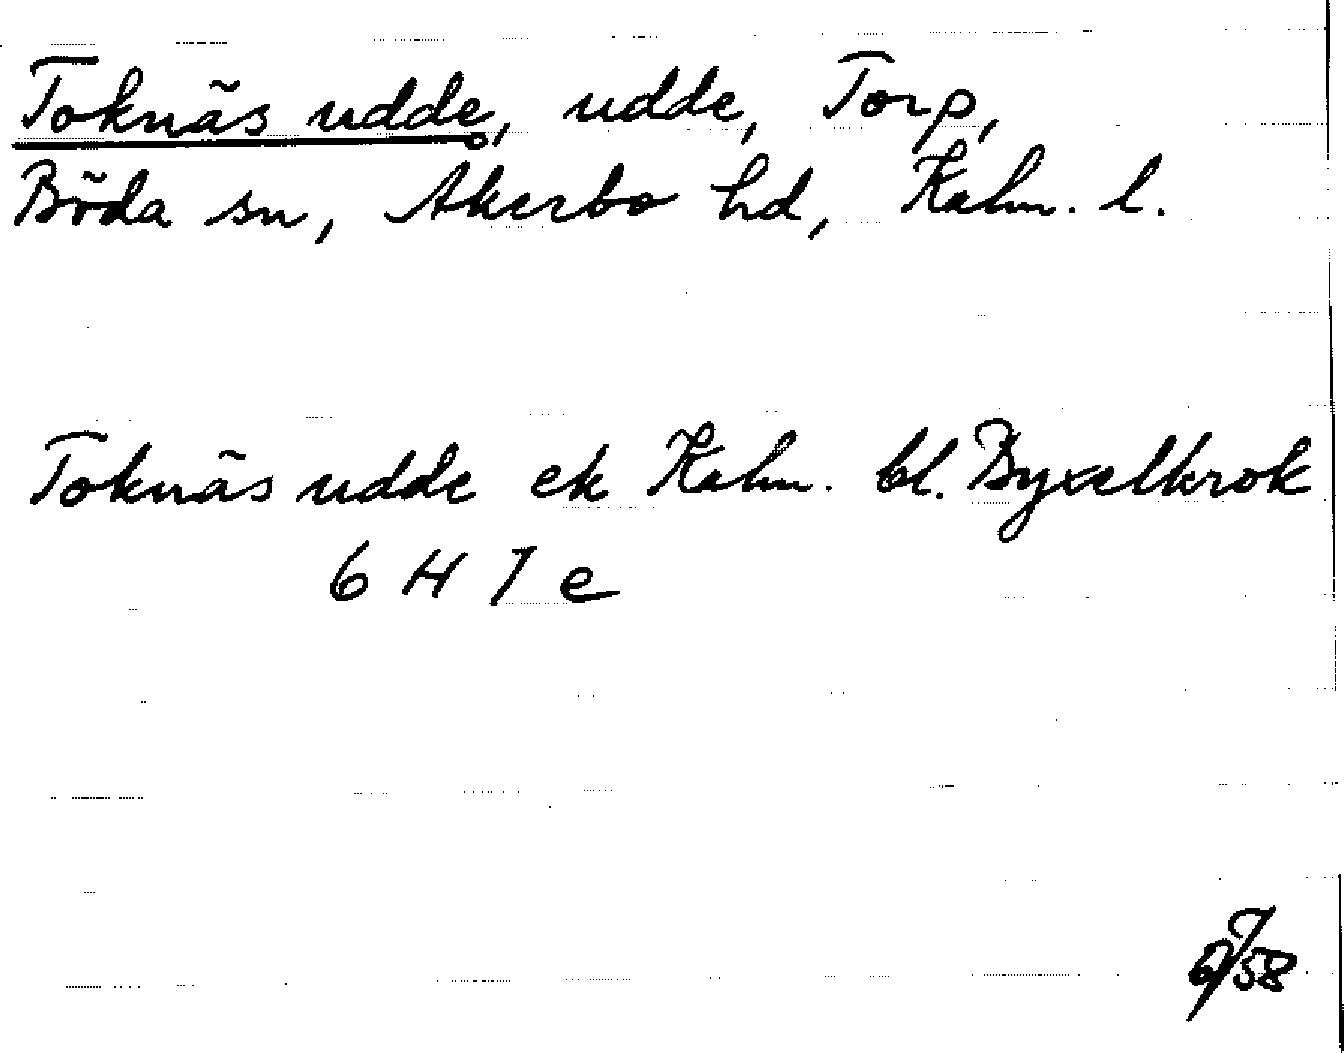 Toknäs udde, udde, Torp,
Böda sn, Åkerbo hd, Kalm. l.
Toknäs udde ek Kalm. bl. Byxelkrok
6 H 7 e
58